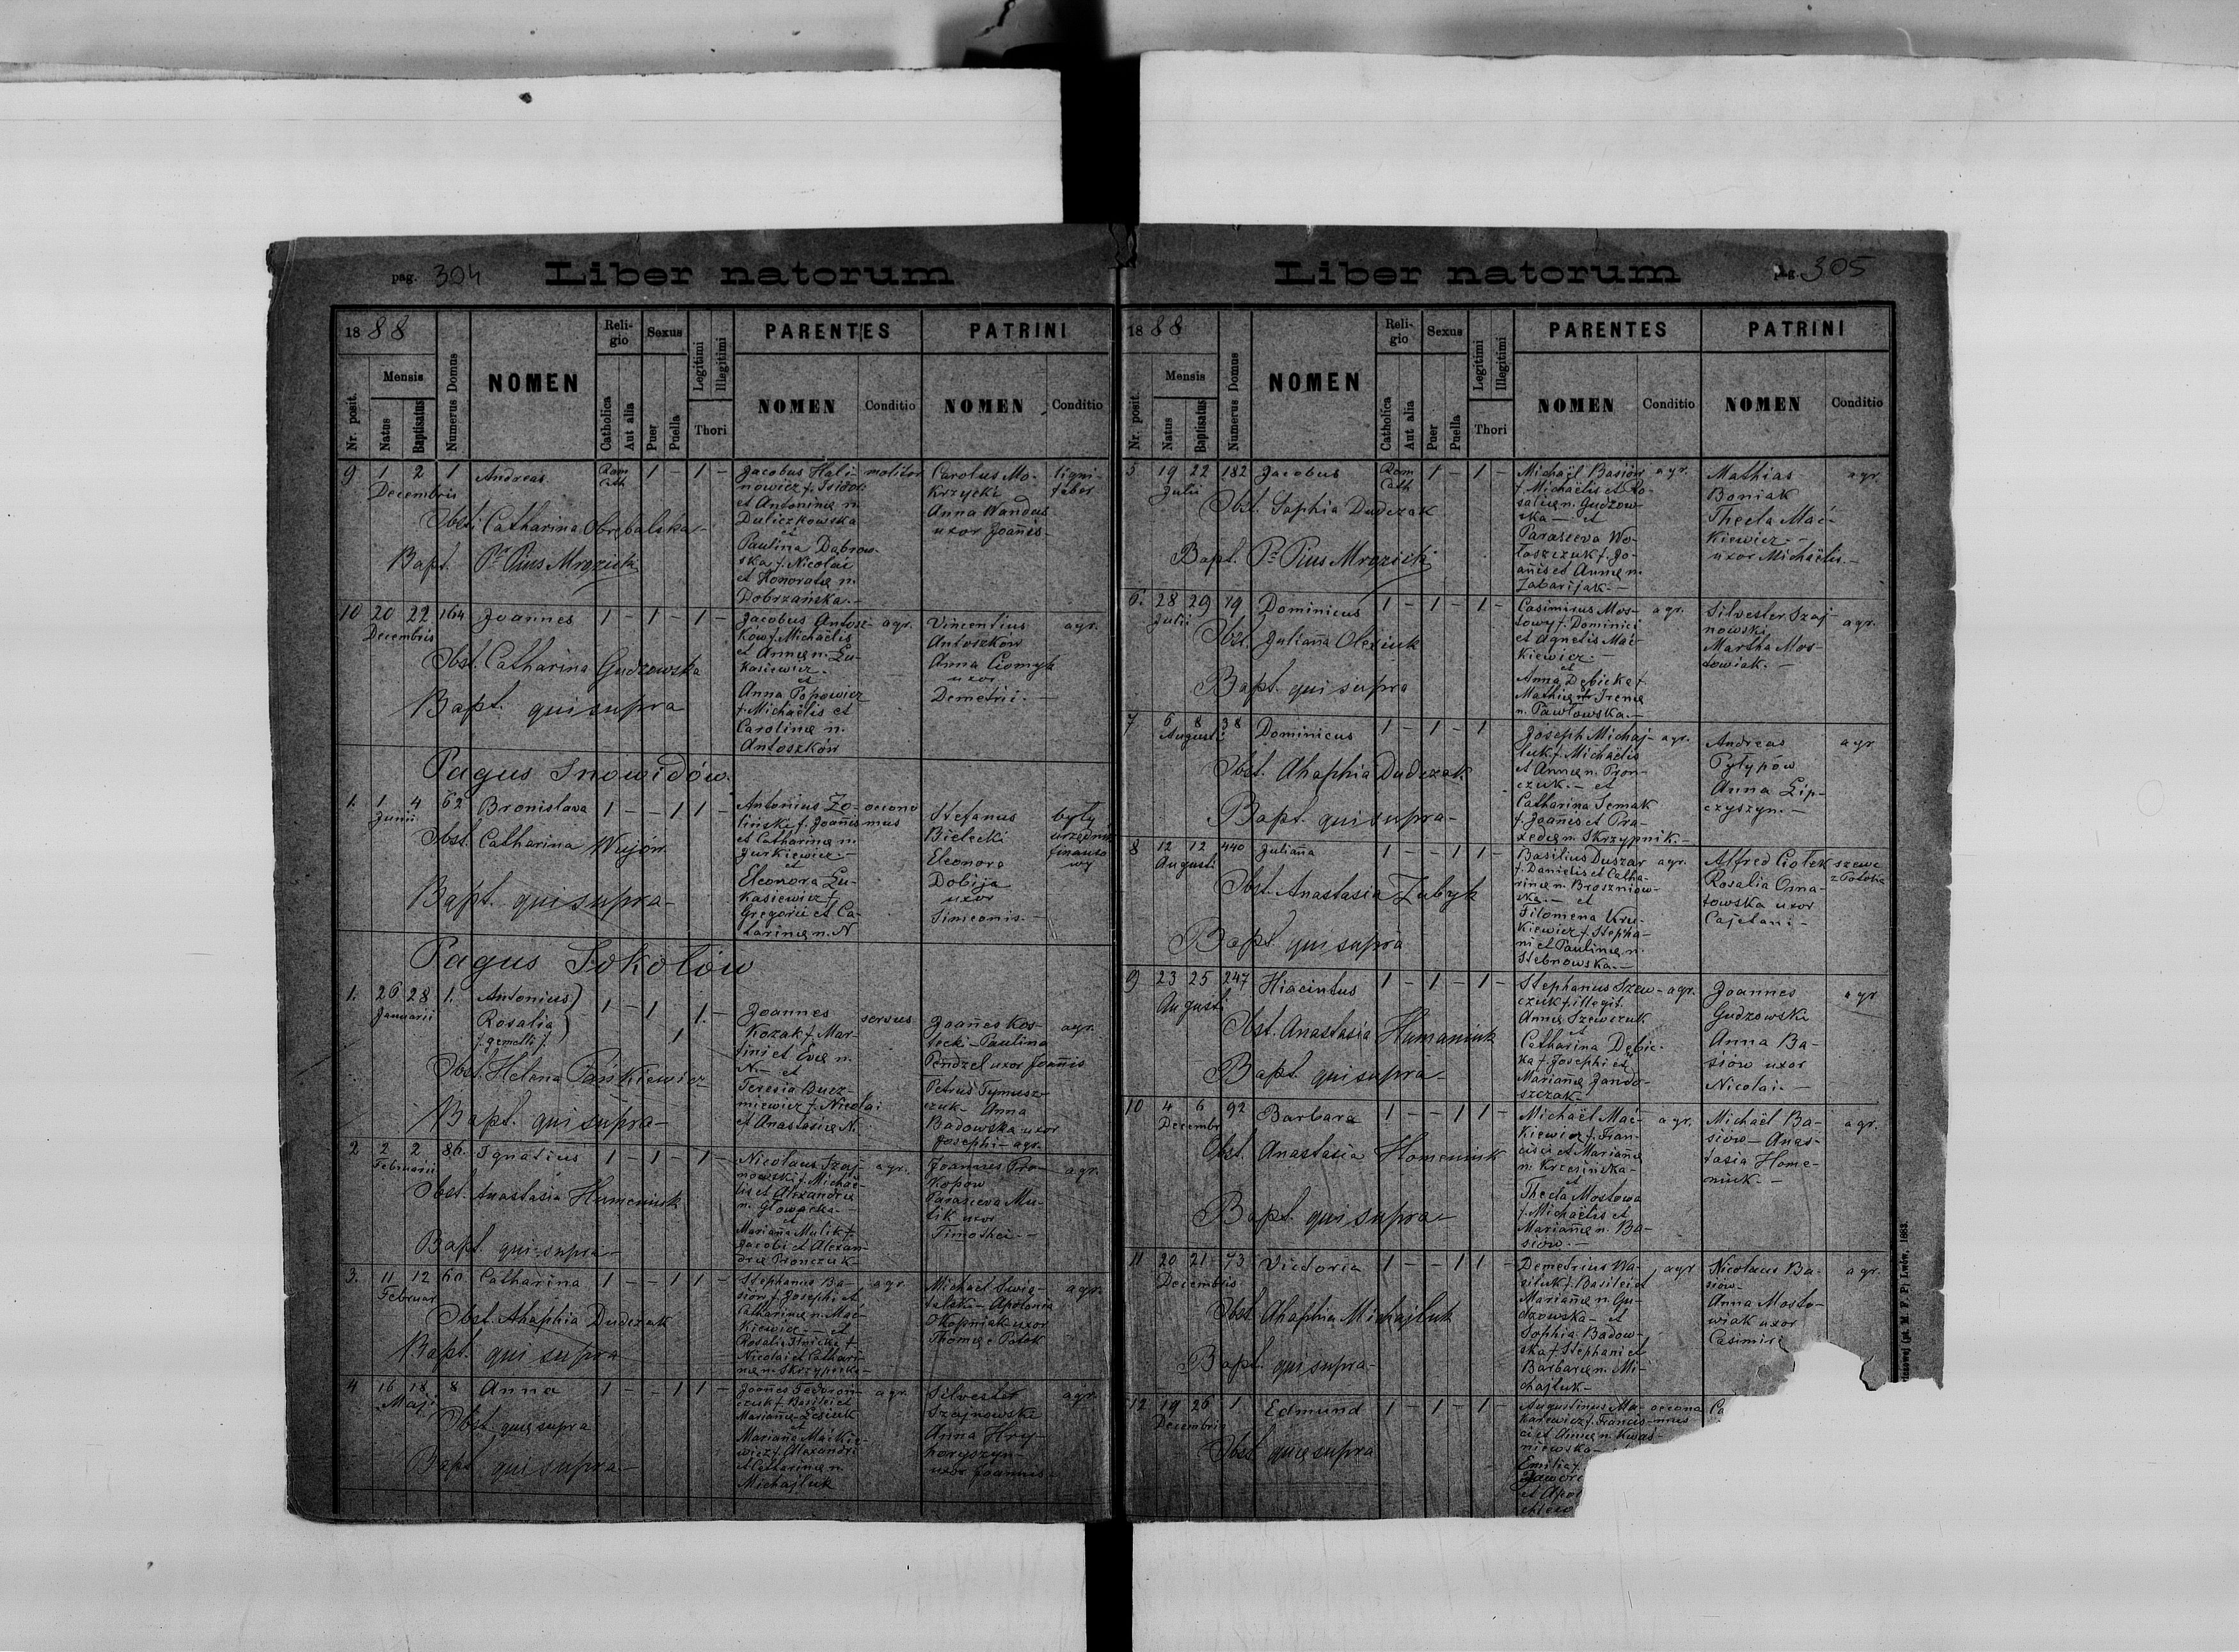 pag. 304 Liber natorum
1888
Nr. posit.
Mensis
Natus
Baptisatus
Numerus Domus
NOMEN
Religio
Catholica
Aut alia
Sexus
Puer
Puella
Legitimi
Illegitimi
Thori
PARENTES
NOMEN
Conditio
PATRINI
NOMEN
Conditio
9 1 2 1 Andreas Rom Cath 1 – 1 –
Decembris
Obst. Catharina
Bapt. Pr Pius Mrozicki
Jacobus Hali-
nowicz f. Isidori
et Antoninæ n.
Duliczkowska
et
Paulina Dąbrow-
ska f. Nicolai
et Honoratæ n.
Dobrzańska. –
molitor
Carolus Mo-
krzycki
Anna Wandus
uxor Joannis –
ligni-
faber
10 20 22 164 Joannes 1 – 1 – 1 –
Decembris
Obst. Catharina Gudzowska
Bapt. qui supra
Jacobus Antosz-
ków f. Michaëlis
et Annæ n. Łu-
kasiewicz. –
et
Anna Popowicz
f. Michaëlis et
Carolinæ n.
Antoszków
agr.
Vincentius
Antoszków
Anna Ciomyk
uxor
Demetrii. –
agr.
Pagus Snowidów.
1. 1 4 62 Bronislava 1 – – 1 1 –
Junii
Obst. Catharina Wujów
Bapt. qui supra –
Antonius Zo-
liński f. Joannis
et Catharinæ n.
Jurkiewicz. –
et
Eleonora Łu-
kasiewicz f.
Gregorii et Ca-
tarinæ n. N
oecono
mus
Stefanus
Bielecki
Eleonora
Dobija
uxor
Simeonis. –
były
urzędnik
finanso
wy
Pagus Sokołów
1. 26 28 1. Antonius 1 – 1 1. –
Januarii
Rosalia 1
f. gemelli f.
Obst. Helena Pańkiewicz
Bapt. qui supra –
Joannes
Kozak f. Mar-
tini et Evæ n.
N. – et
Teresia Bucz-
niewicz f. Nicolai
et Anastasiæ N.
servus
Joannes Kos-
tecki – Paulina
Pendzel uxor Joannis
Petrus Tymusz-
czuk – Anna
Badowska uxor
Josephi – agr.
agr.
2 2 2 86. Ignatius 1 – 1 – 1 –
Februarii
Obst. Anastasia Humeniuk
Bapt. qui supra –
Nicolaus Szaj-
nowski f. Michaë-
lis et Alexandræ
n. Głowacka. –
et
Marianna Mulik f.
Jacobi et Alexan-
dræ Pronczuk –
agr.
Joannes Pro-
kopów
Parasceva Mu-
lik uxor
Timothei –
agr.
3. 11 12 60 Catharina 1 – – 1 1 –
Februar
Obst. Ahaphia Dudczak
Bapt. qui supra
Stephanus Ba-
siów f. Josephi et
Catharinæ n. Mać-
kiewicz – et
Rosalia
Nicolai et Cathari-
næ n. Skrzypnik –
agr.
Michaël
Apolonia
uxor
Thomæ z Potok
agr.
4 16 18 8 Anna 1 – – 1 1 –
Maji
Obst. quæ supra
Bapt. qui supra –
Joannes Fedorow-
czuk f. Basilii et
Mariannæ Lesiuk
et
Marianna Maćkie-
wicz f. Alexandri
et Catharinæ n.
Michajluk
agr.
Silvester
Szajnowski
Anna Hry-
horyszyn –
uxor Joannis
agr.
Liber natorum pag. 305
1888
Nr. posit.
Mensis
Natus
Baptisatus
Numerus Domus
NOMEN
Religio
Catholica
Aut alia
Sexus
Puer
Puella
Legitimi
Illegitimi
Thori
PARENTES
NOMEN
Conditio
PATRINI
NOMEN
Conditio
5 19 22 182 Jacobus Rom Cath 1 – 1 –
Julii
Obst. Sophia Dudczak
Bapt. Pr Pius Mrozicki
Michaël Basiów
f. Michaëlis et Ro-
saliæ n. Gudzow-
ska – et
Parasceva Wo-
łoszczuk f. Jo-
annis et Annæ n.
Zabarijak –
agr.
Mathias
Boniak
Thecla Mać-
kiewicz –
uxor Michaëlis. –
agr.
6. 28 29 19 Dominicus 1 – 1 – 1 –
Julii
Obst. Julianna Olexiuk
Bapt. qui supra
Casimirus Mos-
towy f. Dominici
et Agnetis Mać-
kiewicz. –
et
Anna Dębicka f.
Mathiæ et Irenæ
n. Pawłowska. –
agr.
Silvester Szaj-
nowski
Martha Mos-
towiak. –
agr.
7 6 8 38 Dominicus 1 – 1 – 1
Augusti
Obst. Ahaphia Dudczak
Bapt. qui supra –
Joseph Michaj-
luk f. Michaëlis
et Annæ n. Pron-
czuk. – et
Catharina Semak
f. Joannis et Pra-
xedæ n. Skrzypnik. –
agr.
Andreas
Pyłypów
Anna Lip-
czyszyn. –
agr
8 12 12 440 Julianna 1 – – 1 1 –
Augusti
Obst. Anastasia Zubryk
Bapt. qui supra
Basilius Duszar
f. Danielis et Catha-
rinæ n. Broszniow-
ska. – et
Filomena Kru-
kiewicz f. Stepha-
ni et Paulinæ n.
Stebnowska. –
agr.
Alfred Ciołek
Rosalia Onna-
towska uxor
Cajetani –
szewc
z Potoka
9 23 25 247 Hiacintus 1 – 1 – 1 –
Augusti
Obst. Anastasia Humaniuk
Bapt. qui supra –
Stephanus Szew-
czuk f. illegit.
Annæ Szewczuk
et
Catharina Dębic-
ka f. Josephi et
Mariannæ Jando-
szczak –
agr.
Joannes
Gudzowski
Anna Ba-
siów uxor
Nicolai. –
agr
10 4 6 92 Barbara 1 – – 1 1 –
Decembr
Obst. Anastasia Homeniuk
Bapt. qui supra –
Michaël Mać-
kiewicz f. Fran-
cisci et Mariannæ
n. Krzesińska –
et
Thecla Mostowa
f. Michaëlis et
Mariannæ n. Ba-
siów. –
agr.
Michaël Ba-
siów – Anas-
tasia Home-
niuk. –
agr.
11 20 21 73 Victoria 1 – – 1 1 –
Decembris
Obst. Ahaphia Michajluk
Bapt. qui supra –
Demetrius Wa-
siluk f. Basilii et
Mariannæ n. Gu-
dzowska – et
Sophia Badow-
ska f. Stephani et
Barbaræ n. Mi-
chajluk –
agr
Nicolaus Ba-
siów –
Anna Mosto-
wiak uxor
Casimiri
agr.
12 19 26 1 Edmund 1 – 1 – 1
Decembris
Obst quæ supra
Augustinus Ma-
karewicz f. Francis-
ci et Annæ n. Kwaś-
niewska –
Emilia f.
et Apol
oecono
mus
Ca